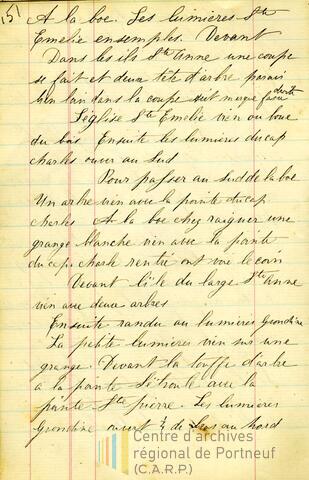 151
A la boe. Les lumieres Ste
Emelie ensemples. Devant
Dans les ils Ste Anne une coupe
se fait et deux tête d'arbre parais
bien loin dans la coupe
droite
L'église Ste Emelie vien au boue
du bois Ensuite les lumieres du cap
charles ouvr au sud
Pour passer au sud de la boe
Un arbre vien avec la pointe du cap
charles A la boe chez raiguer une
grange blanche vien avec la pointe
du cap charle rentré ont voie le coin
Devant l'île du large Ste Anne
vien avec deux arbres
Ensuite randu au lumieres Grondine
La petite lumieres vien sur une
grange. Devant la touffe d'arbre
à la pointe avec la
pointe Ste pierre. Les lumieres
Grondine ouvert 1/4 de au nord
Centre d'archives
régional de Portneuf
(C.A.R.P.)